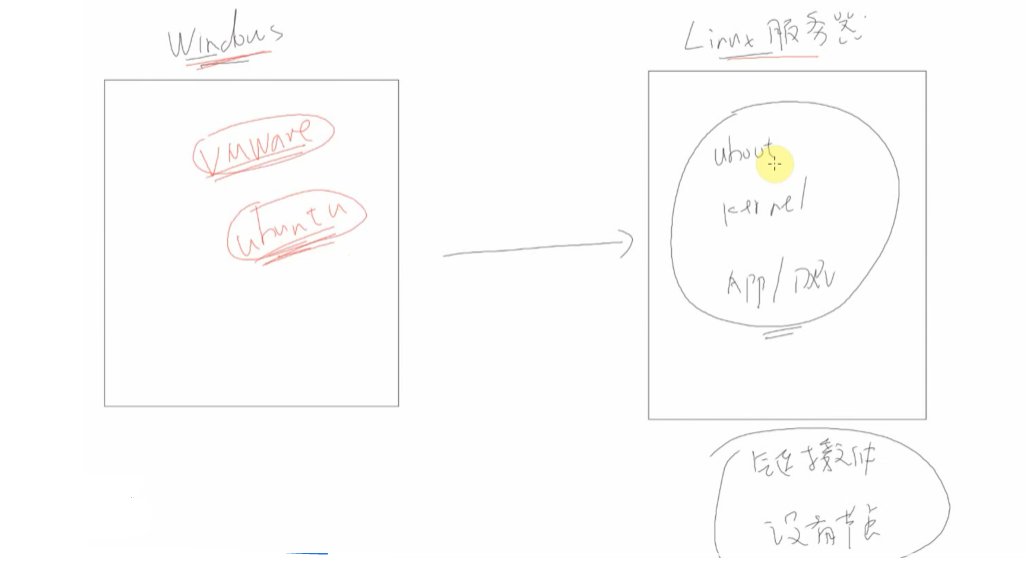 Windows
vmware
ubuntu
Linux服务器
uboot
kernel
App/DRV
链接文件
设备节点